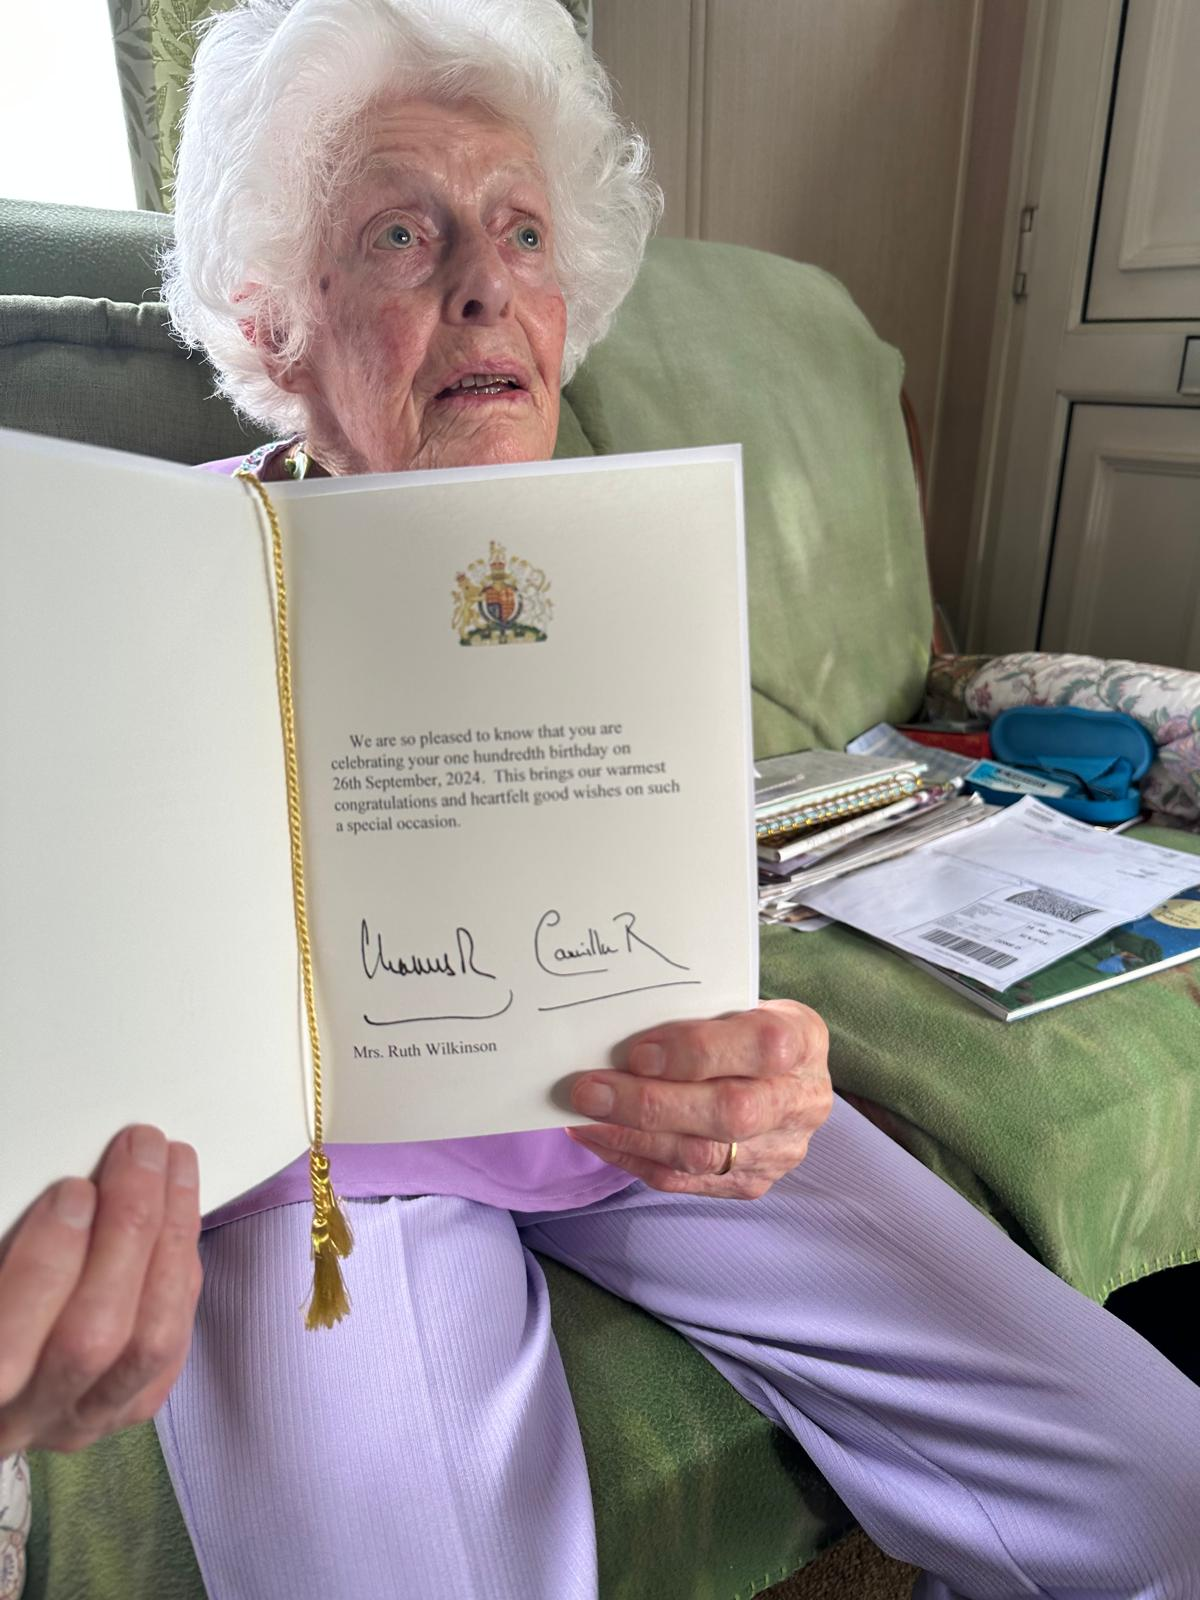 We are so pleased to know that you are
celebrating your one hundredth birthday on
26th September, 2024. This brings our warmest
congratulations and heartfelt good wishes on such
a special occasion.
Charles R
Camilla R
Mrs. Ruth Wilkinson